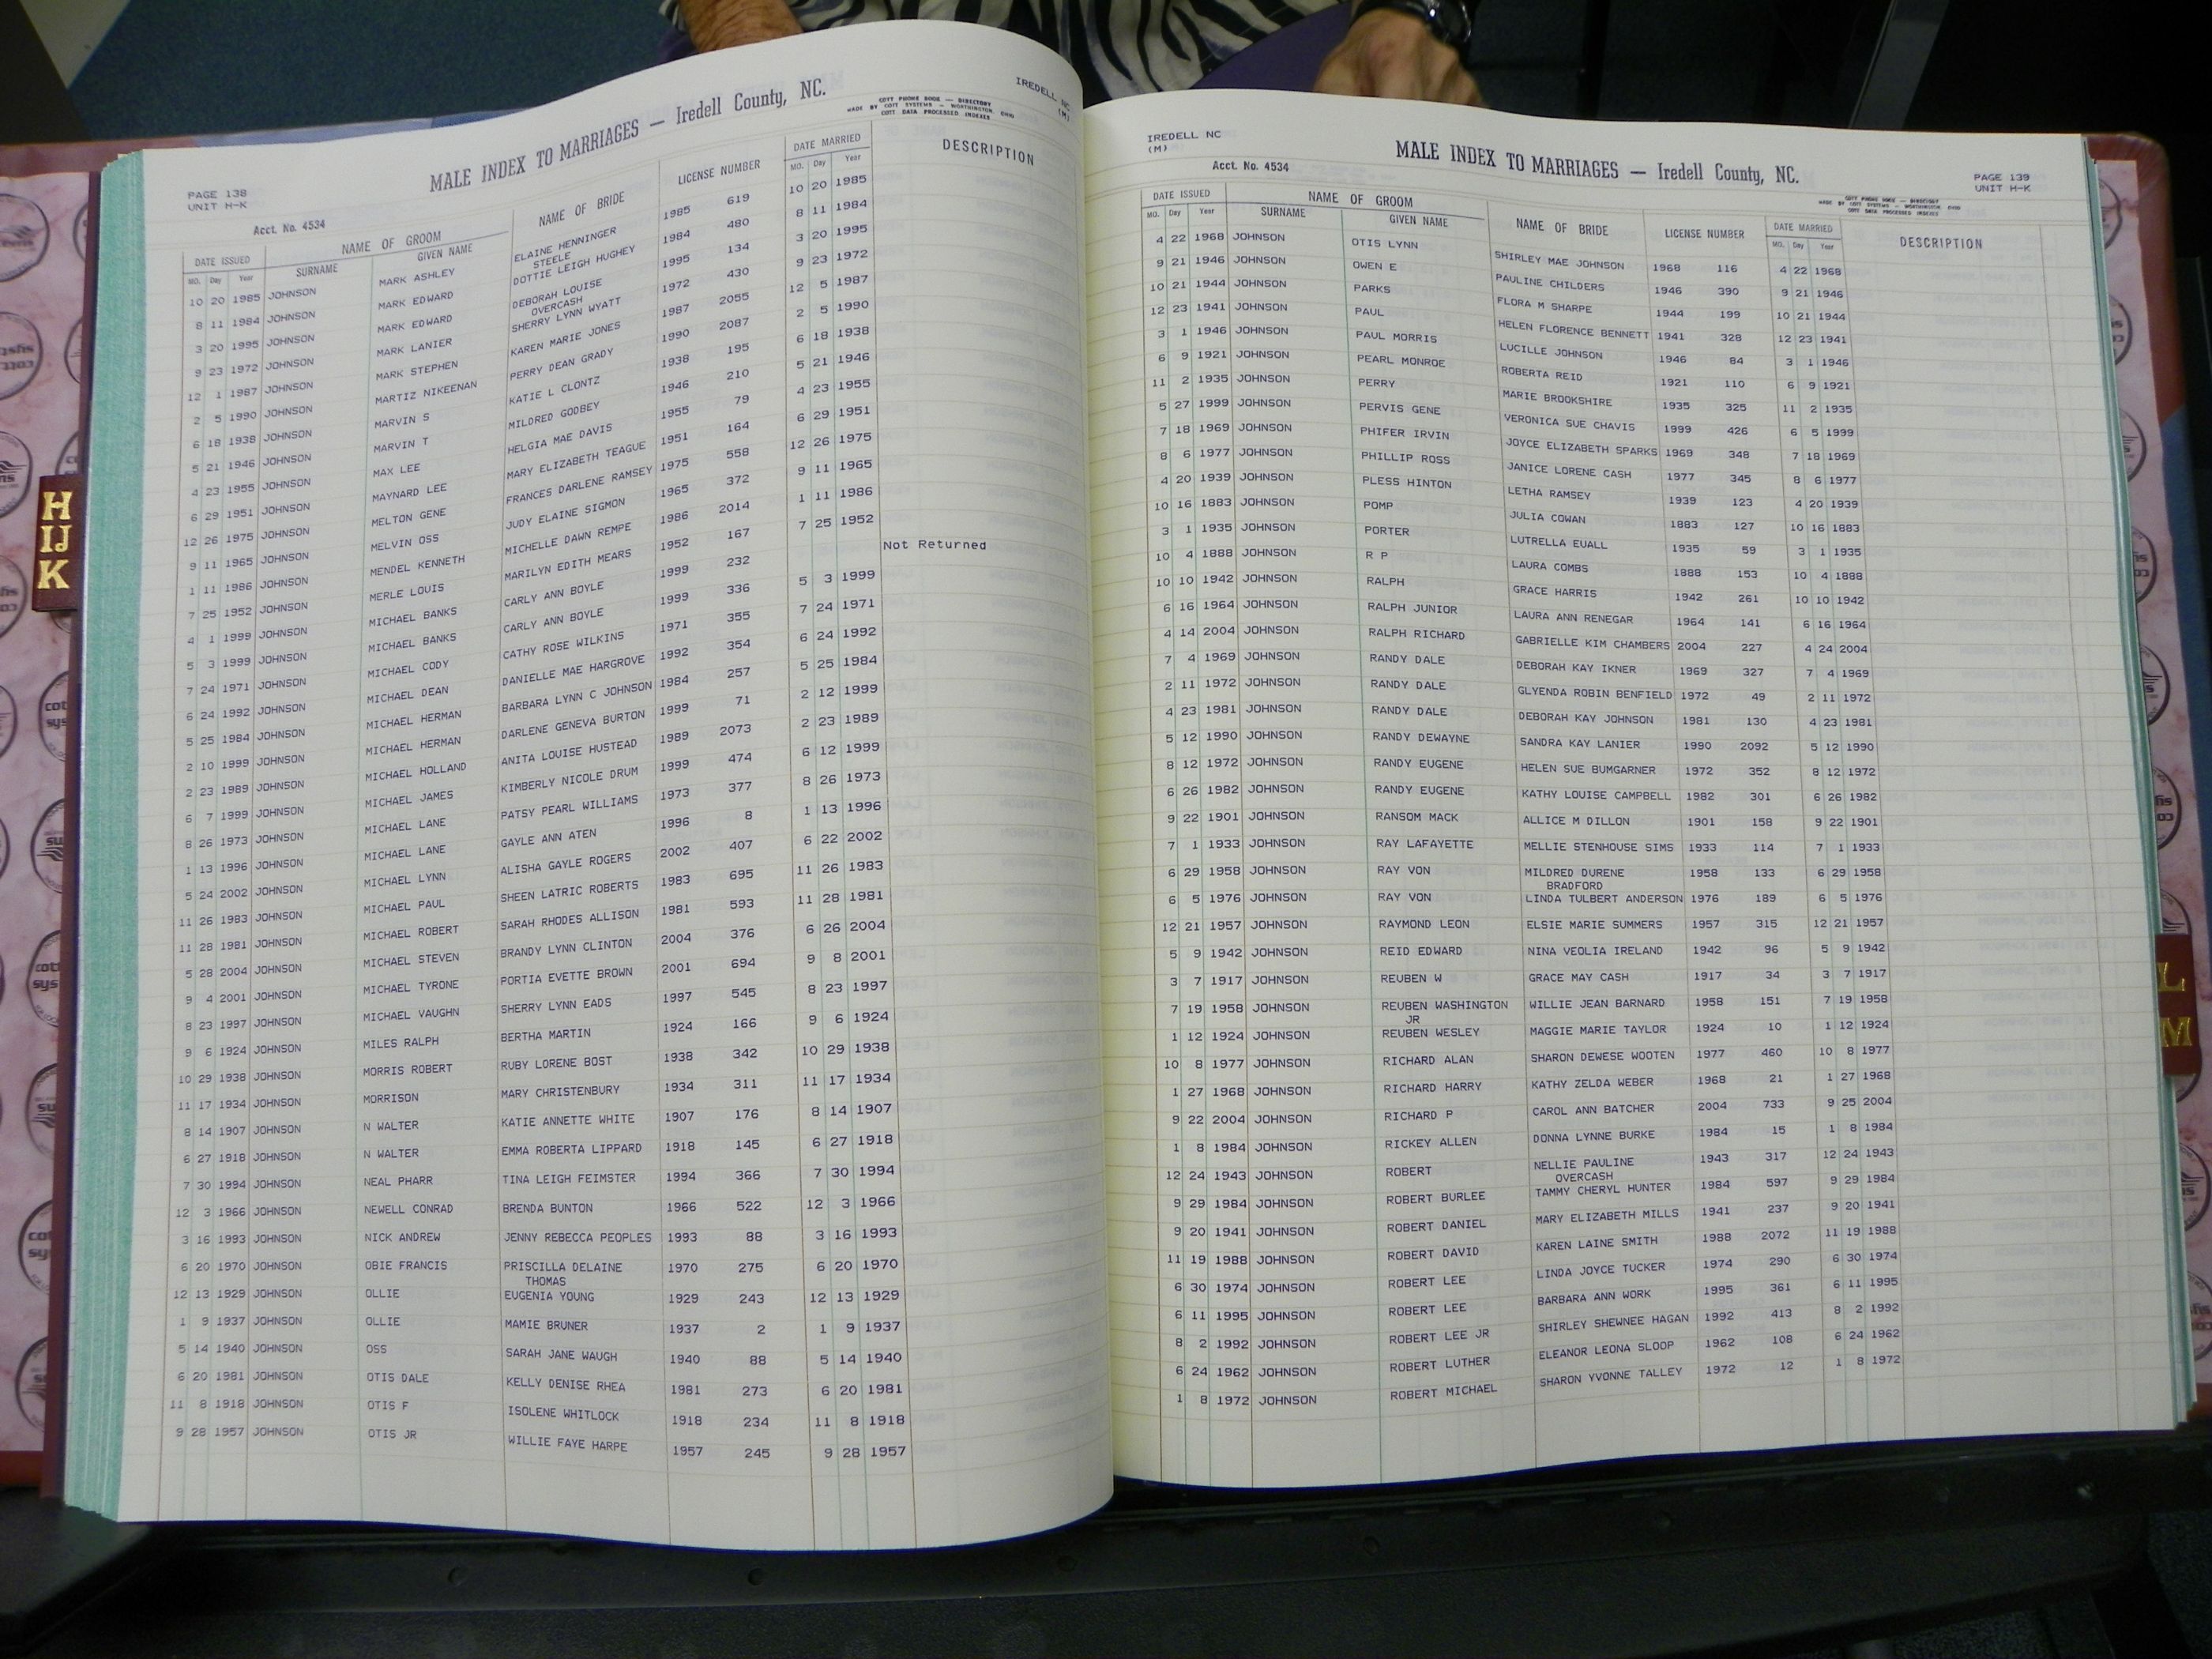 MALE INDEX TO MARRIAGES — Iredell County, NC.
COTT PHONE BOOK — DIRECTORY
MADE BY COTT SYSTEMS — WORTHINGTON, OHIO
COTT DATA PROCESSED INDEXES
IREDELL NC
(M)
PAGE 138
UNIT H-K
Acct. No. 4534
DATE ISSUED NAME OF GROOM NAME OF BRIDE LICENSE NUMBER DATE MARRIED DESCRIPTION
MO. Day Year SURNAME GIVEN NAME MO. Day Year
10 20 1985 JOHNSON MARK ASHLEY ELAINE HENNINGER 1985 619 10 20 1985
STEELE
8 11 1984 JOHNSON MARK EDWARD DOTTIE LEIGH HUGHEY 1984 480 8 11 1984
3 20 1995 JOHNSON MARK EDWARD DEBORAH LOUISE 1995 134 3 20 1995
OVERCASH
9 23 1972 JOHNSON MARK LANIER SHERRY LYNN WYATT 1972 430 9 23 1972
12 1 1987 JOHNSON MARK STEPHEN KAREN MARIE JONES 1987 2055 12 5 1987
2 5 1990 JOHNSON MARTIZ NIKEENAN PERRY DEAN GRADY 1990 2087 2 5 1990
6 18 1938 JOHNSON MARVIN S KATIE L CLONTZ 1938 195 6 18 1938
5 21 1946 JOHNSON MARVIN T MILDRED GODBEY 1946 210 5 21 1946
4 23 1955 JOHNSON MAX LEE HELGIA MAE DAVIS 1955 79 4 23 1955
6 29 1951 JOHNSON MAYNARD LEE MARY ELIZABETH TEAGUE 1951 164 6 29 1951
12 26 1975 JOHNSON MELTON GENE FRANCES DARLENE RAMSEY 1975 558 12 26 1975
9 11 1965 JOHNSON MELVIN OSS JUDY ELAINE SIGMON 1965 372 9 11 1965
1 11 1986 JOHNSON MENDEL KENNETH MICHELLE DAWN REMPE 1986 2014 1 11 1986
7 25 1952 JOHNSON MERLE LOUIS MARILYN EDITH MEARS 1952 167 7 25 1952
4 1 1999 JOHNSON MICHAEL BANKS CARLY ANN BOYLE 1999 232 Not Returned
5 3 1999 JOHNSON MICHAEL BANKS CARLY ANN BOYLE 1999 336 5 3 1999
7 24 1971 JOHNSON MICHAEL CODY CATHY ROSE WILKINS 1971 355 7 24 1971
6 24 1992 JOHNSON MICHAEL DEAN DANIELLE MAE HARGROVE 1992 354 6 24 1992
5 25 1984 JOHNSON MICHAEL HERMAN BARBARA LYNN C JOHNSON 1984 257 5 25 1984
2 10 1999 JOHNSON MICHAEL HERMAN DARLENE GENEVA BURTON 1999 71 2 12 1999
2 23 1989 JOHNSON MICHAEL HOLLAND ANITA LOUISE HUSTEAD 1989 2073 2 23 1989
6 7 1999 JOHNSON MICHAEL JAMES KIMBERLY NICOLE DRUM 1999 474 6 12 1999
8 26 1973 JOHNSON MICHAEL LANE PATSY PEARL WILLIAMS 1973 377 8 26 1973
1 13 1996 JOHNSON MICHAEL LANE GAYLE ANN ATEN 1996 8 1 13 1996
5 24 2002 JOHNSON MICHAEL LYNN ALISHA GAYLE ROGERS 2002 407 6 22 2002
11 26 1983 JOHNSON MICHAEL PAUL SHEEN LATRIC ROBERTS 1983 695 11 26 1983
11 28 1981 JOHNSON MICHAEL ROBERT SARAH RHODES ALLISON 1981 593 11 28 1981
5 28 2004 JOHNSON MICHAEL STEVEN BRANDY LYNN CLINTON 2004 376 6 26 2004
9 4 2001 JOHNSON MICHAEL TYRONE PORTIA EVETTE BROWN 2001 694 9 8 2001
8 23 1997 JOHNSON MICHAEL VAUGHN SHERRY LYNN EADS 1997 545 8 23 1997
9 6 1924 JOHNSON MILES RALPH BERTHA MARTIN 1924 166 9 6 1924
10 29 1938 JOHNSON MORRIS ROBERT RUBY LORENE BOST 1938 342 10 29 1938
11 17 1934 JOHNSON MORRISON MARY CHRISTENBURY 1934 311 11 17 1934
8 14 1907 JOHNSON N WALTER KATIE ANNETTE WHITE 1907 176 8 14 1907
6 27 1918 JOHNSON N WALTER EMMA ROBERTA LIPPARD 1918 145 6 27 1918
7 30 1994 JOHNSON NEAL PHARR TINA LEIGH FEIMSTER 1994 366 7 30 1994
12 3 1966 JOHNSON NEWELL CONRAD BRENDA BUNTON 1966 522 12 3 1966
3 16 1993 JOHNSON NICK ANDREW JENNY REBECCA PEOPLES 1993 88 3 16 1993
6 20 1970 JOHNSON OBIE FRANCIS PRISCILLA DELAINE 1970 275 6 20 1970
THOMAS
12 13 1929 JOHNSON OLLIE EUGENIA YOUNG 1929 243 12 13 1929
1 9 1937 JOHNSON OLLIE MAMIE BRUNER 1937 2 1 9 1937
5 14 1940 JOHNSON OSS SARAH JANE WAUGH 1940 88 5 14 1940
6 20 1981 JOHNSON OTIS DALE KELLY DENISE RHEA 1981 273 6 20 1981
11 8 1918 JOHNSON OTIS F ISOLENE WHITLOCK 1918 234 11 8 1918
9 28 1957 JOHNSON OTIS JR WILLIE FAYE HARPE 1957 245 9 28 1957
H
IJ
K
IREDELL NC
(M)
Acct. No. 4534
MALE INDEX TO MARRIAGES — Iredell County, NC.
PAGE 139
UNIT H-K
COTT PHONE BOOK — DIRECTORY
MADE BY COTT SYSTEMS — WORTHINGTON, OHIO
COTT DATA PROCESSED INDEXES
DATE ISSUED NAME OF GROOM NAME OF BRIDE LICENSE NUMBER DATE MARRIED DESCRIPTION
MO. Day Year SURNAME GIVEN NAME MO. Day Year
4 22 1968 JOHNSON OTIS LYNN SHIRLEY MAE JOHNSON 1968 116 4 22 1968
9 21 1946 JOHNSON OWEN E PAULINE CHILDERS 1946 390 9 21 1946
10 21 1944 JOHNSON PARKS FLORA M SHARPE 1944 199 10 21 1944
12 23 1941 JOHNSON PAUL HELEN FLORENCE BENNETT 1941 328 12 23 1941
3 1 1946 JOHNSON PAUL MORRIS LUCILLE JOHNSON 1946 84 3 1 1946
6 9 1921 JOHNSON PEARL MONROE ROBERTA REID 1921 110 6 9 1921
11 2 1935 JOHNSON PERRY MARIE BROOKSHIRE 1935 325 11 2 1935
5 27 1999 JOHNSON PERVIS GENE VERONICA SUE CHAVIS 1999 426 6 5 1999
7 18 1969 JOHNSON PHIFER IRVIN JOYCE ELIZABETH SPARKS 1969 348 7 18 1969
8 6 1977 JOHNSON PHILLIP ROSS JANICE LORENE CASH 1977 345 8 6 1977
4 20 1939 JOHNSON PLESS HINTON LETHA RAMSEY 1939 123 4 20 1939
10 16 1883 JOHNSON POMP JULIA COWAN 1883 127 10 16 1883
3 1 1935 JOHNSON PORTER LUTRELLA EUALL 1935 59 3 1 1935
10 4 1888 JOHNSON R P LAURA COMBS 1888 153 10 4 1888
10 10 1942 JOHNSON RALPH GRACE HARRIS 1942 261 10 10 1942
6 16 1964 JOHNSON RALPH JUNIOR LAURA ANN RENEGAR 1964 141 6 16 1964
4 14 2004 JOHNSON RALPH RICHARD GABRIELLE KIM CHAMBERS 2004 227 4 24 2004
7 4 1969 JOHNSON RANDY DALE DEBORAH KAY IKNER 1969 327 7 4 1969
2 11 1972 JOHNSON RANDY DALE GLYENDA ROBIN BENFIELD 1972 49 2 11 1972
4 23 1981 JOHNSON RANDY DALE DEBORAH KAY JOHNSON 1981 130 4 23 1981
5 12 1990 JOHNSON RANDY DEWAYNE SANDRA KAY LANIER 1990 2092 5 12 1990
8 12 1972 JOHNSON RANDY EUGENE HELEN SUE BUMGARNER 1972 352 8 12 1972
6 26 1982 JOHNSON RANDY EUGENE KATHY LOUISE CAMPBELL 1982 301 6 26 1982
9 22 1901 JOHNSON RANSOM MACK ALLICE M DILLON 1901 158 9 22 1901
7 1 1933 JOHNSON RAY LAFAYETTE MELLIE STENHOUSE SIMS 1933 114 7 1 1933
6 29 1958 JOHNSON RAY VON MILDRED DURENE 1958 133 6 29 1958
BRADFORD
6 5 1976 JOHNSON RAY VON LINDA TULBERT ANDERSON 1976 189 6 5 1976
12 21 1957 JOHNSON RAYMOND LEON ELSIE MARIE SUMMERS 1957 315 12 21 1957
5 9 1942 JOHNSON REID EDWARD NINA VEOLIA IRELAND 1942 96 5 9 1942
3 7 1917 JOHNSON REUBEN W GRACE MAY CASH 1917 34 3 7 1917
7 19 1958 JOHNSON REUBEN WASHINGTON WILLIE JEAN BARNARD 1958 151 7 19 1958
JR
1 12 1924 JOHNSON REUBEN WESLEY MAGGIE MARIE TAYLOR 1924 10 1 12 1924
10 8 1977 JOHNSON RICHARD ALAN SHARON DEWESE WOOTEN 1977 460 10 8 1977
1 27 1968 JOHNSON RICHARD HARRY KATHY ZELDA WEBER 1968 21 1 27 1968
9 22 2004 JOHNSON RICHARD P CAROL ANN BATCHER 2004 733 9 25 2004
1 8 1984 JOHNSON RICKEY ALLEN DONNA LYNNE BURKE 1984 15 1 8 1984
12 24 1943 JOHNSON ROBERT NELLIE PAULINE 1943 317 12 24 1943
OVERCASH
9 29 1984 JOHNSON ROBERT BURLEE TAMMY CHERYL HUNTER 1984 597 9 29 1984
9 20 1941 JOHNSON ROBERT DANIEL MARY ELIZABETH MILLS 1941 237 9 20 1941
11 19 1988 JOHNSON ROBERT DAVID KAREN LAINE SMITH 1988 2072 11 19 1988
6 30 1974 JOHNSON ROBERT LEE LINDA JOYCE TUCKER 1974 290 6 30 1974
6 11 1995 JOHNSON ROBERT LEE BARBARA ANN WORK 1995 361 6 11 1995
8 2 1992 JOHNSON ROBERT LEE JR SHIRLEY SHEWNEE HAGAN 1992 413 8 2 1992
6 24 1962 JOHNSON ROBERT LUTHER ELEANOR LEONA SLOOP 1962 108 6 24 1962
1 8 1972 JOHNSON ROBERT MICHAEL SHARON YVONNE TALLEY 1972 12 1 8 1972
L
M